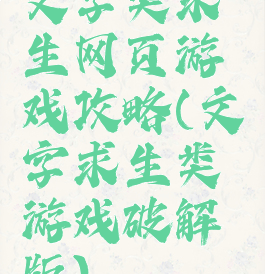 文字类求
生网页游
戏攻略(文
字求生类
游戏破解
版)